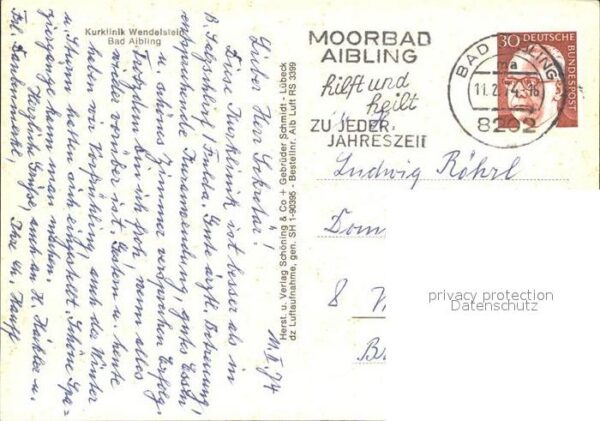 Kurklinik Wendelstein
Bad Aibling
11.II.74
Guter Herr Sekretär!
Diese Kurklinik ist besser als in
B. Salzschlirf! Frau. Gute ärztl. Betreuung,
entsprechende Anwendung, gutes Essen
u. schönes Zimmer versprechen Erfolg.
Trotzdem bin ich froh, wenn alles
wieder vorüber ist. Gestern u. heute
haben wir Vorfrühling, auch der Winter
u. Sturm hatten sich eingestellt. Schöne Spa=
ziergänge kann man machen.
Herzliche Grüße, auch an H. u.
Frl. Ihre
Herst. u. Verlag Schöning & Co + Gebrüder Schmidt - Lübeck
dz Luftaufnahme, gen. SH 1-90395 - Bestellnr. Aib Luft RS 3399
MOORBAD
AIBLING
hilft und
heilt
ZU JEDER
JAHRESZEIT
BAD AIBLING
ma
11.2.74.-16
8202
30 DEUTSCHE
BUNDESPOST
Ludwig Röhrl
Dom
8
privacy protection
Datenschutz